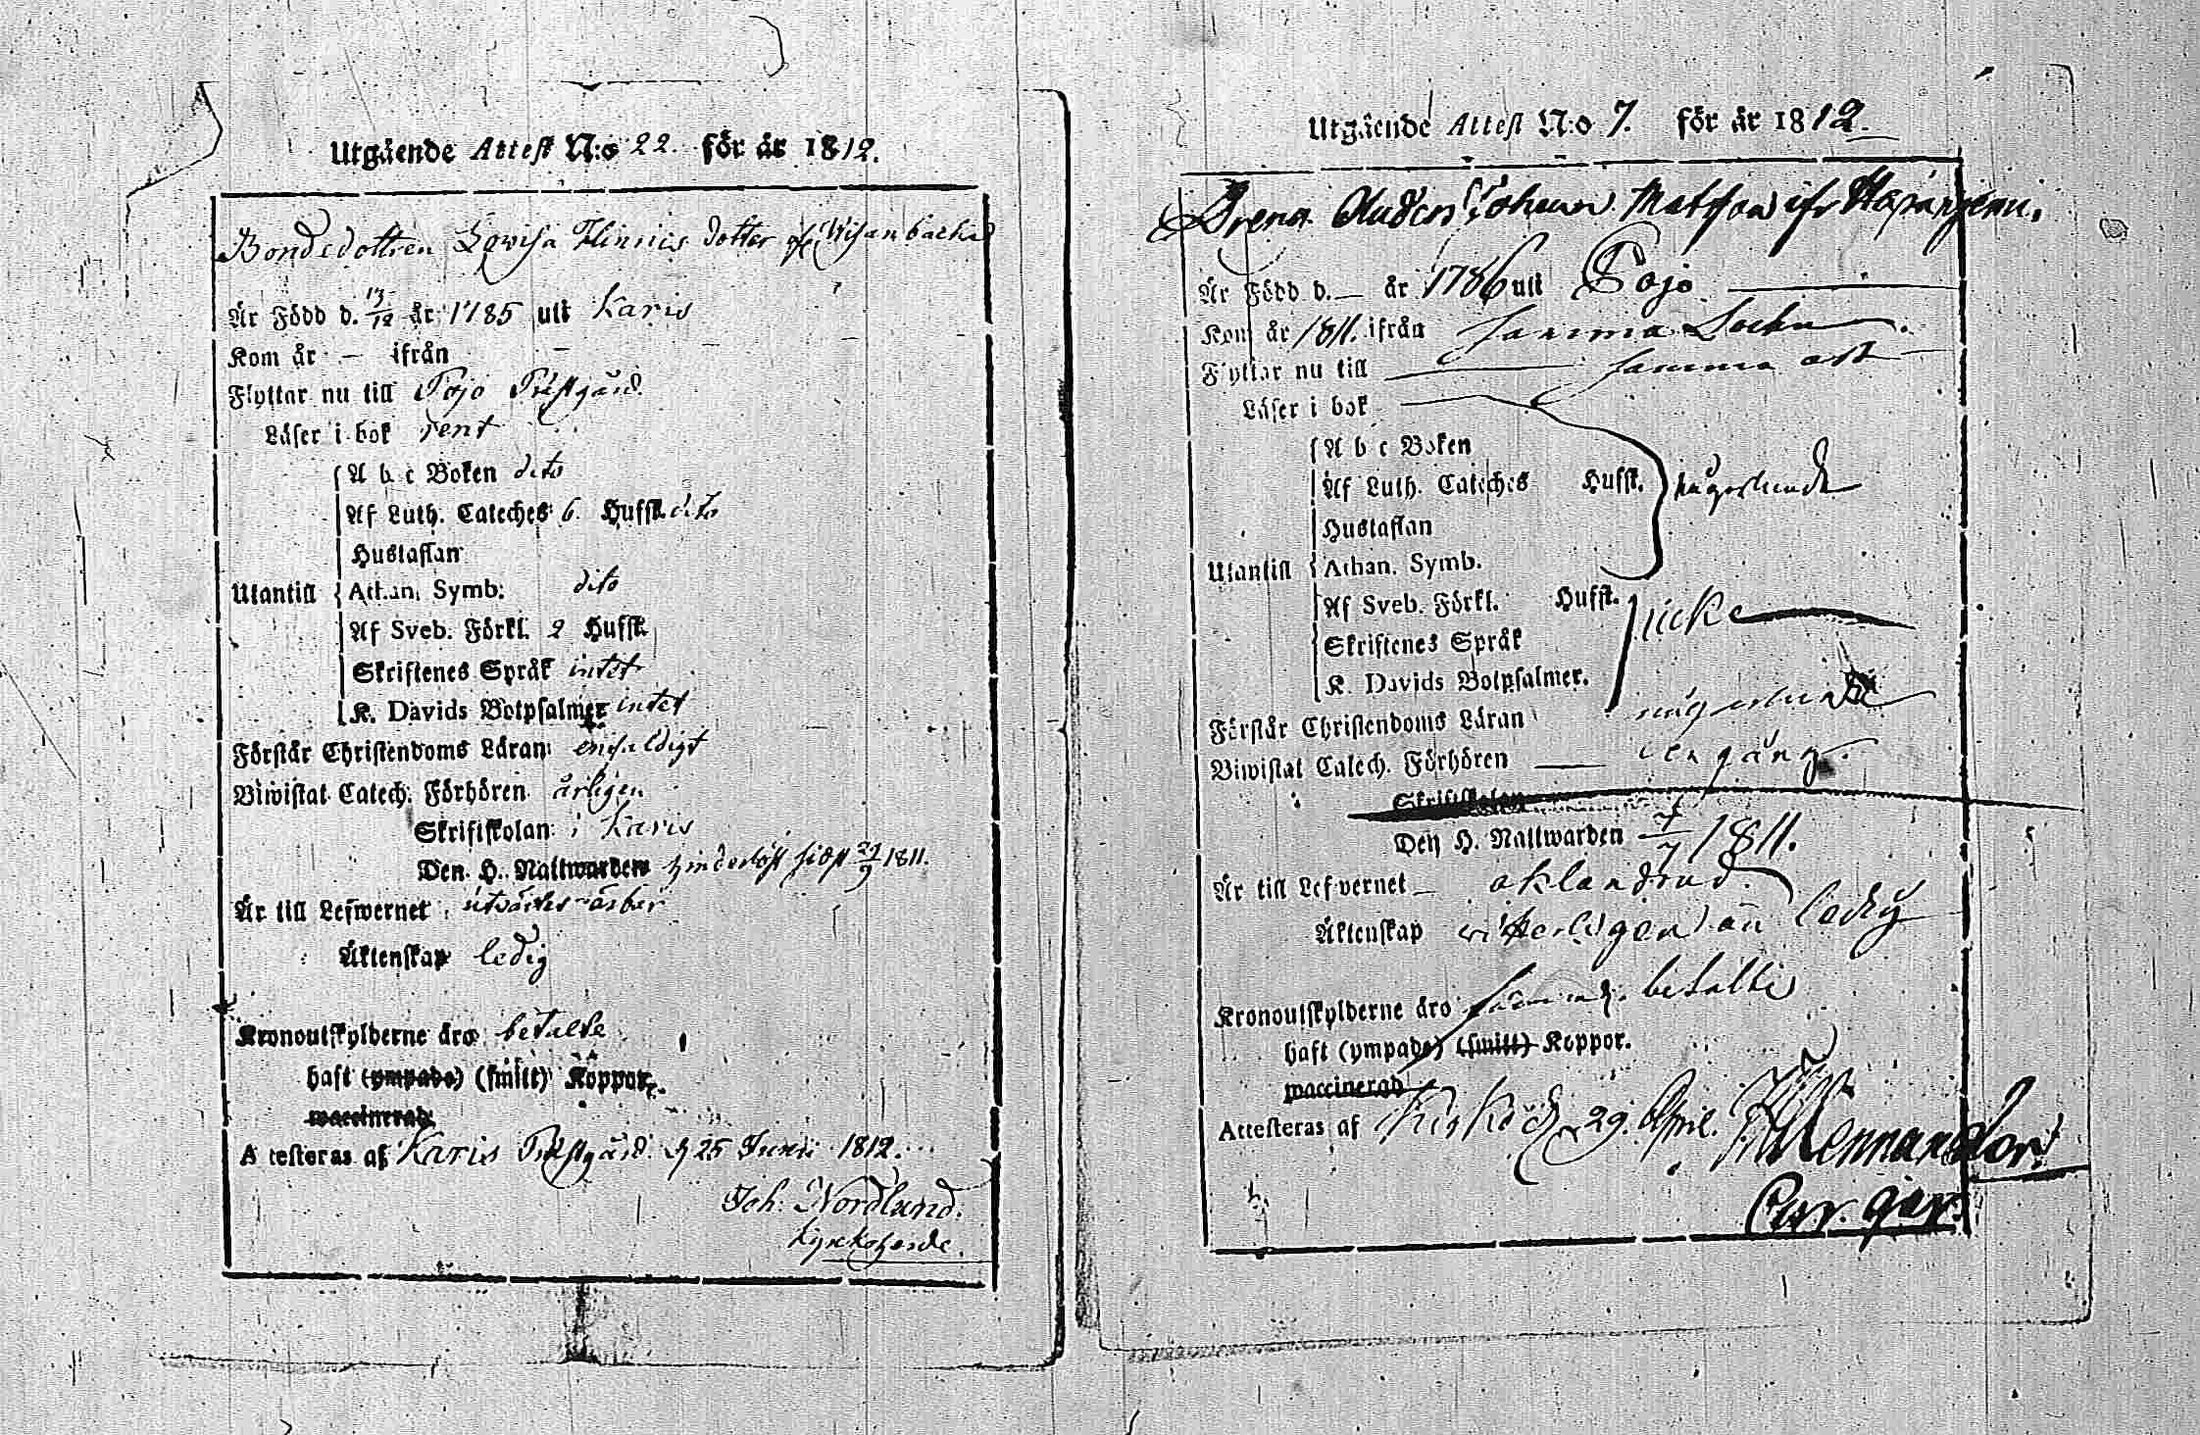 Utgående Attest N:o 22. för år 1812.
Bondedottren Lovisa Hinrics dotter
Är Född d. 13/12 år 1785 uti Karis
Kom år - ifrån -
Flyttar nu till Pojo Prestgård.
Läser i bok rent
A b c Boken dito
Af Luth. Cateches 6. Hufst. dito
Hustaflan
Utantill Athan. Symb: dito
Af Sveb. Förkl. 2 Hufst.
Skriftenes Språk intet
K. Davids Botpsalmer intet
Förstår Christendoms Läran enfaldigt
Biwistat Catech. Förhören årligen
Skriftskolan i Karis
Den H. Nattwarden hinderlöst sidst 21/9 1811.
Är till Lefwernet
Äktenskap ledig
Kronoutskylderne äro betalte
haft (ympade) (smitt) Koppor.
waccinerad
Attesteras af Karis Prestgård d 25 Junii 1812.
Joh. Nordlund.
Kyrkoherde.
Utgående Attest N:o 7. för år 1812.
Johan Matsson ifr
Är Född d. — år 1786 uti Pojo
Kom år 1811. ifrån samma Sockn.
Flyttar nu till samma ort
Läser i bok
A b c Boken
Af Luth. Cateches Hufst. någorlunda
Hustaflan
Utantill Athan. Symb.
Af Sveb. Förkl. Hufst. icke
Skriftenes Språk
K. Davids Botpsalmer.
Förstår Christendoms Läran någorlunda
Biwistat Catech. Förhören — en gång.
Skriftskolan
Den H. Nattwarden 7/7 1811.
Är till Lefvernet — oklandrad.
Äktenskap witterligen ledig
Kronoutskylderne äro betalte
haft (ympade) (smitt) Koppor.
waccinerad
Attesteras af Kisko d. 29. April.